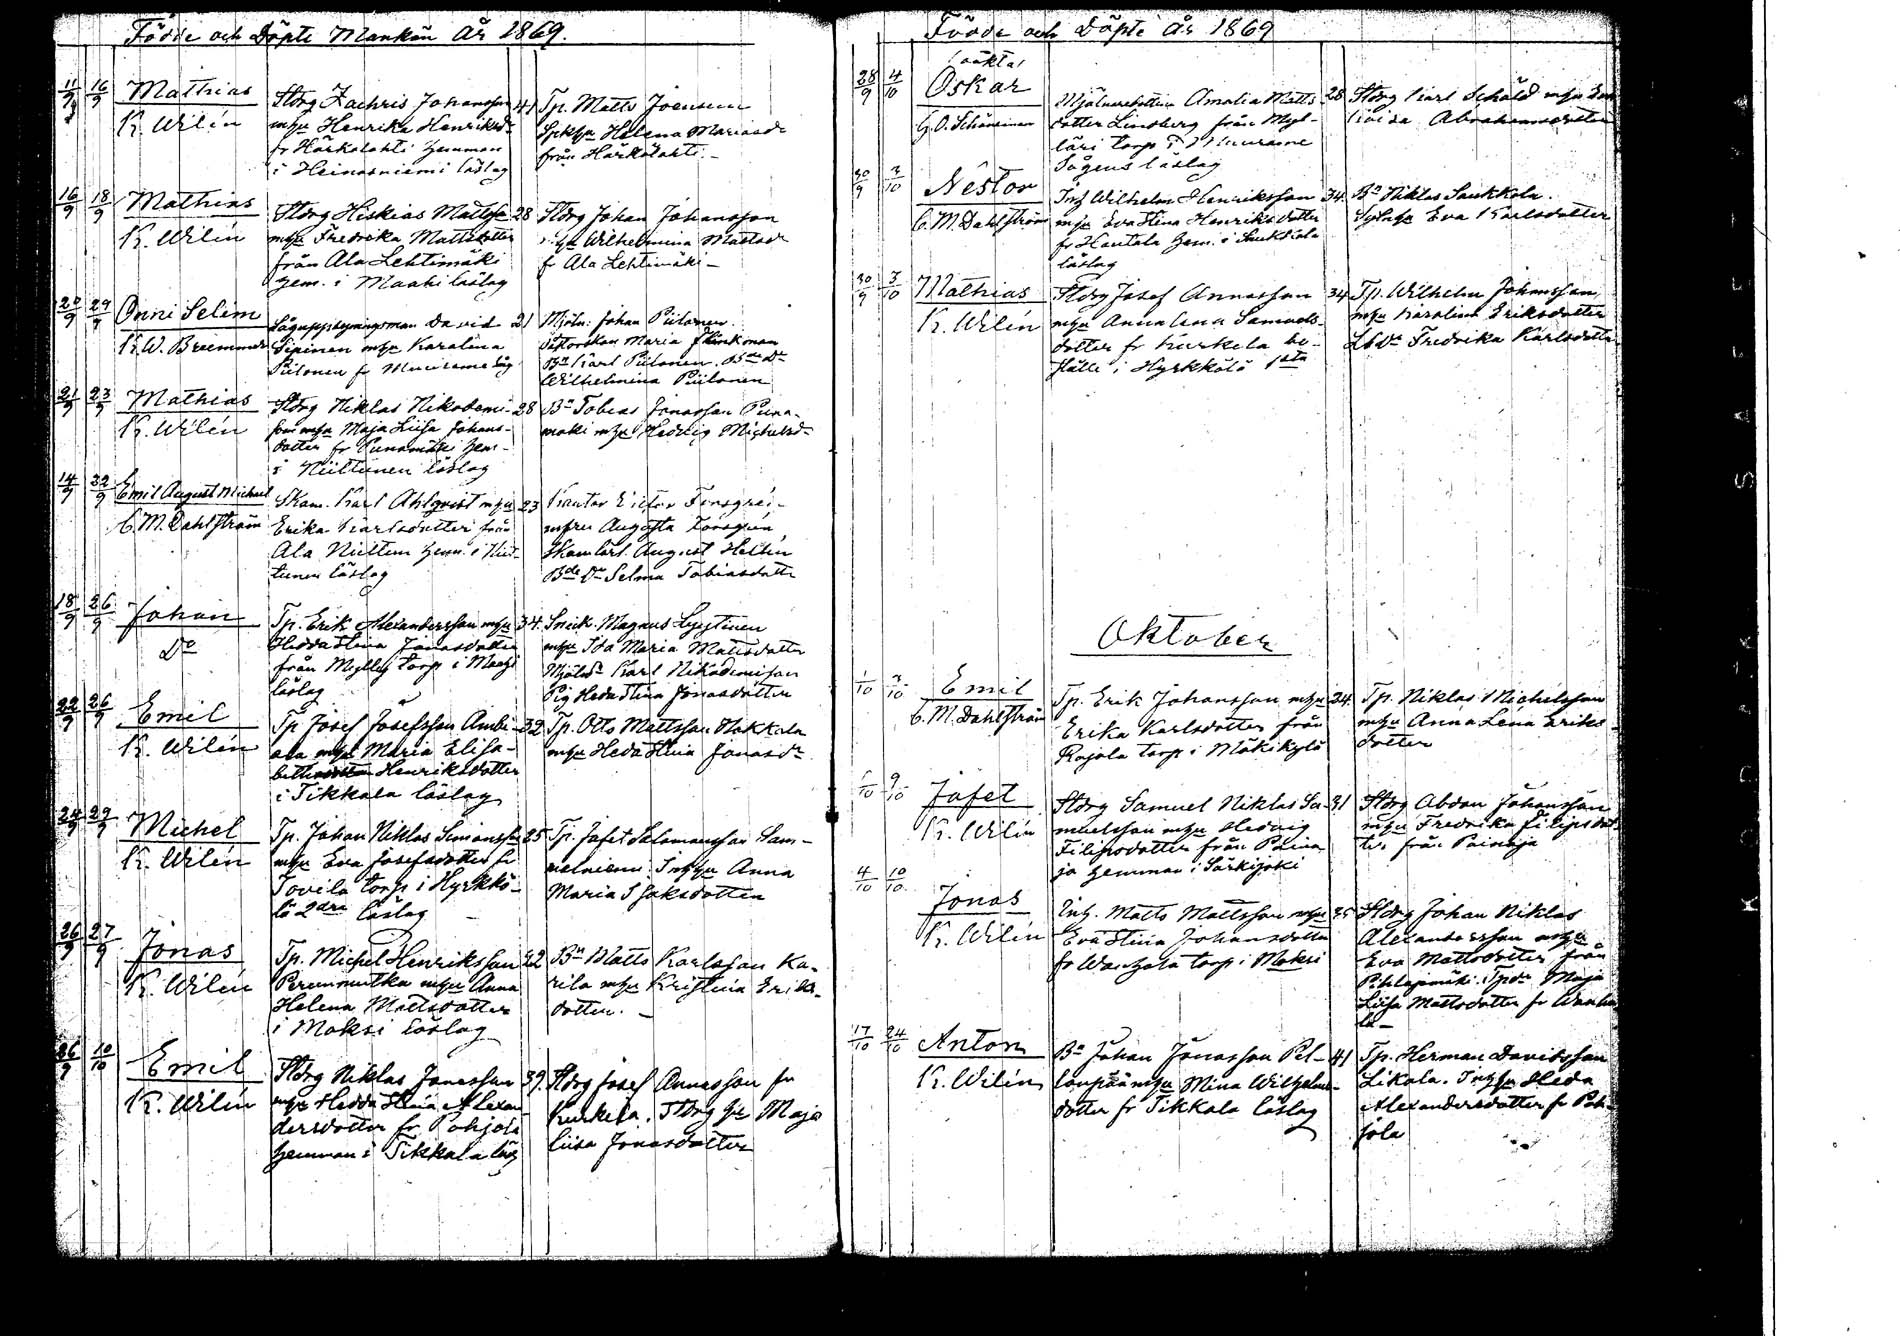 Födde och Döpte Mankön År 1869.
11/9 16/9 Mathias
K. Wilén
Stdrg Zachris Johansson 41
mhu Henrika Henriksdr
fr Härkälahti hemman
i Heinoniemi låslag
Tp. Matts Joensuu
Spkhu Helena Mariasdr
från Härkälahti.
16/9 18/9 Mathias
K. Wilén
Stdrg Hiskias Mattss 28
mhu Fredrika Mattsdotter
från Ala Lehtimäki
hem. i låslag
Stdrg Johan Johansson
mhu Wilhelmina Mattsdr
fr Ala Lehtimäki
20/9 29/9 Onni Selim
K. W. Bremmer
David 21
Sipinen mhu Karolina
Piilonen fr Muurame såg
Mjöln. Johan Piilonen
Maria Flinkman
Bn Karl Piilonen. Bde Dr
Wilhelmina Piilonen
21/9 23/9 Mathias
K. Wilén
Stdrg Niklas Nikodemi- 28
son mhu Maja Liisa Johans-
dotter fr Punamäki hem-
i Niittunen låslag
Bn Tobias Jonasson Puna-
maki mhu Hedvig Michelsd-
14/9 22/9 Emil August Michael
C. M. Dahlström
Skom. Karl Ahlqvist mhu 23
Erika Karlsdotter från
Ala Niittun hem. i Niit-
tunen låslag
Kantor Victor Forsgrén
mfru Augusta Forsgrén
August Hellén
Bde Dr Selma Tobiasdottr
18/9 26/9 Johan
Do
Tp. Erik Alexandersson mhu 34.
Hedda Stina Jonasdotter
från Mylly torp i
låslag
Snick. Magnus Lyytinen
mhu Ida Maria Mattsdotter
Karl Nikodemison
Pig Heda Stina Jonasdotter
22/9 26/9 Emil
K. Wilén
Tp Josef Josefsson Ambi- 32
ala mhu Maria Elisa-
beth Henriksdotter
i Tikkala låslag
Tp. Otto Mattsson Hokkala
mhu Heda Stina Jonasdr
24/9 29/9 Michel
K. Wilén
Tp. Johan Niklas Simonsson 25
mhu Eva Josefsdotter fr
Tovila torp i Hyrkkö-
lä 2dra låslag
Tp. Jafet Salomonsson Sam-
malniemi. Inhhu Anna
Maria Isaksdotter
26/9 27/9 Jonas
K. Wilén
Tp. Michel Henriksson 22
mhu Anna
Helena Mattsdotter
i Moksi låslag
Bn Matts Karlsson Ka-
rila mhu Kristina Eriks-
dotter.
26/9 10/10 Emil
K. Wilén
Stdrg Niklas Jonasson 39.
mhu Hedda Stina Alexan-
dersdotter fr Pohjola
hemman i Tikkala låsg
Stdrg Josef Annasson fr
Kurkela. Stdrg hu Maja
Liisa Jonasdotter
Födde och Döpte År 1869
(oäkta)
28/9 4/10 Oskar
G. O. Schöneman
Mjölnaredottern Amalia Matts- 28
dotter Lindberg från Myl-
läri torp i Muurame
Sågens låslag
Stdrg Karl Schöld mhu
Abrahamsdotter
30/9 3/10 Nestor
C. M. Dahlström
Inh Wilhelm Henriksson 34.
mhu Eva Stina Henriksdotter
fr Hautala hem. i Saukkola
låslag
Bn Niklas Saukkola.
Eva Karlsdotter
30/9 3/10 Mathias
K. Wilén
Stdrg Josef Annasson 34
mhu Anna Lena Samuels-
dotter fr Kurkela be-
ställe i Hyrkkölä 1sta
Tp. Wilhelm Johansson
mhu Karolina Eriksdotter
Fredrika Karlsdotter
Oktober
1/10 3/10 Emil
C. M. Dahlström
Tp. Erik Johansson mhu 24.
Erika Karlsdotter från
Rajala torp i Mäkikylä
Tp. Niklas Michelsson
mhu Anna Lena Eriks-
dotter
1/10 9/10 Jafet
K. Wilén
Stdrg Samuel Niklas Sa- 31
muelsson mhu Hedvig
Filipsdotter från Paina-
ja hemman i Särkijoki
Stdrg Abdon Johansson
mhu Fredrika Filipsdot-
ter från Painaja
4/10 10/10 Jonas
K. Wilén
Inh. Matts Mattsson mhu 35
Eva Stina Johansdotter
torp i Moksi
Stdrg Johan Niklas
Alexandersson mhu
Eva Mattsdotter från
Pihlajamäki. Tpdr Maja
Liisa Mattsdotter fr
17/10 24/10 Anton
K. Wilén
Bn Johan Jonasson Pel- 41
mhu Mina Wilhelms-
dotter fr Tikkala låslag
Tp. Herman Davidsson
Likola. Inhhu Heda
Alexandersdotter fr Poh-
jola
KODAK SAFETY